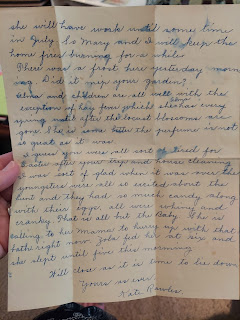 she will have work until some time
in July. So Mary and I will keep the
home fires burning for a while.
There was a frost here yesterday morn
ing. Did it nip your garden?
and children are all well with the
exception of hay fever which she has every
spring until after the locust blossoms are
gone. She is some better the perfume is not
so great as it was.
I guess you were all sort of tired for
Easter after your trip and house cleaning
I was sort of glad when it was over, the
youngsters were all so excited about the
hunt and they had so much candy along
with their eggs all were whiney and
cranky. That is all but the Baby. She is
calling to her Mama to hurry up with that
bath right now. fed her at six and
she slept until five this morning.
Will close as it is time to lie down
Yours as ever
Kate